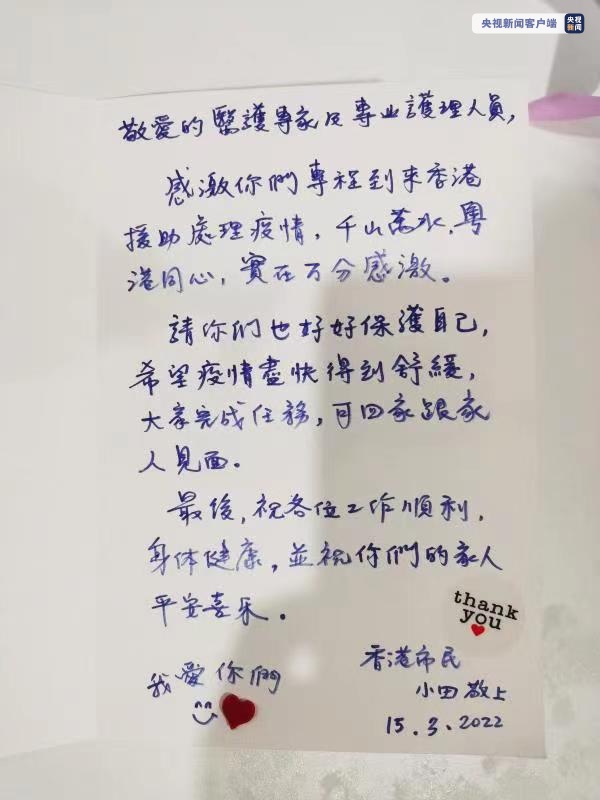 央视新闻客户端
央视
新闻
敬愛的醫護專家及專业護理人員，
感激你們專程到來香港
援助處理疫情，千山萬水，粵
港同心，實在万分感激。
請你们也好好保護自己，
希望疫情盡快得到舒緩，
大家完成任務，可回家跟家
人見面。
最後，祝各位工作順利，
身体健康，並祝你們的家人
平安喜乐。
thank
you
我愛你們
香港市民
小田敬上
15.3.2022